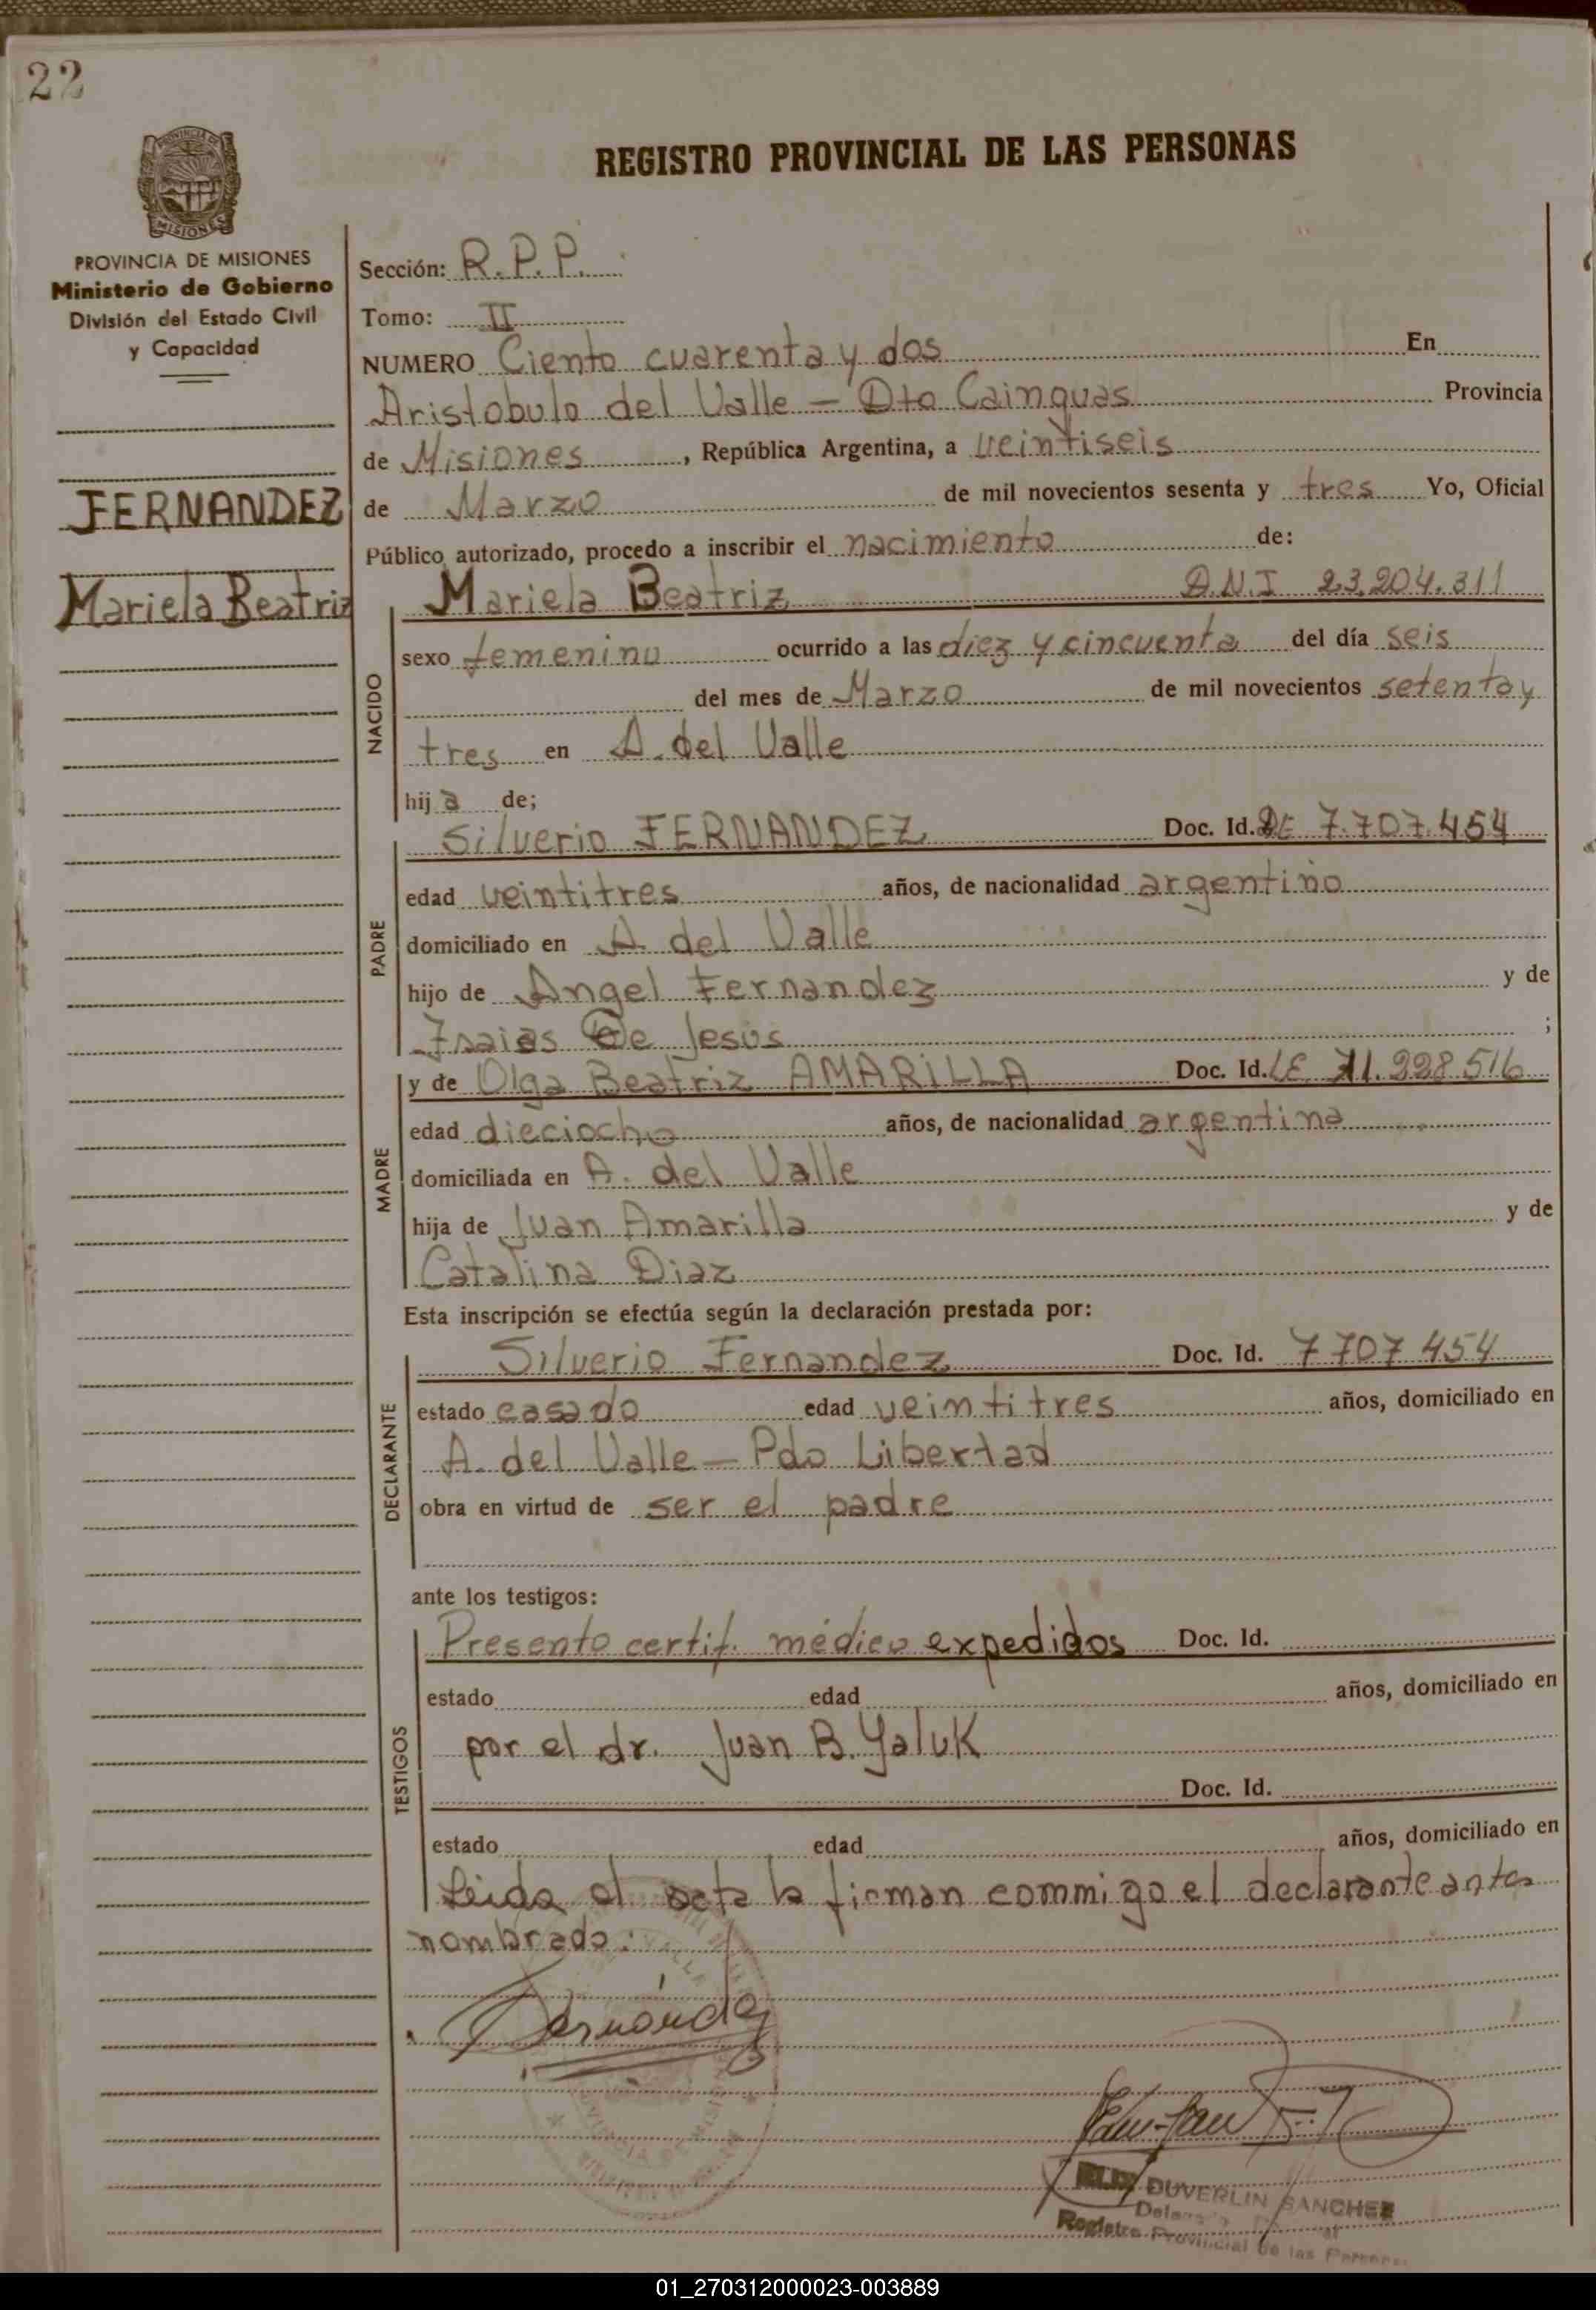 22
PROVINCIA DE
MISIONES
REGISTRO PROVINCIAL DE LAS PERSONAS
PROVINCIA DE MISIONES
Ministerio de Gobierno
División del Estado Civil
y Capacidad
FERNANDEZ
Mariela Beatriz
Sección: R.P.P.
Tomo: II
NUMERO Ciento cuarenta y dos En
Aristobulo del Valle - Dto Cainguas Provincia
de Misiones, República Argentina, a veintiseis
de Marzo de mil novecientos sesenta y tres Yo, Oficial
Público autorizado, procedo a inscribir el nacimiento de:
Mariela Beatriz D.N.I 23.204.311
NACIDO
sexo femenino ocurrido a las diez y cincuenta del día seis
del mes de Marzo de mil novecientos setenta y
tres en A. del Valle
hija de;
Silverio FERNANDEZ Doc. Id. 7.707.454
PADRE
edad veintitres años, de nacionalidad argentino
domiciliado en A. del Valle
hijo de Angel Fernandez y de
Isaias De Jesus ;
y de Olga Beatriz AMARILLA Doc. Id. LE 11.998.516
MADRE
edad dieciocho años, de nacionalidad argentina
domiciliada en A. del Valle
hija de Juan Amarilla y de
Catalina Diaz
Esta inscripción se efectúa según la declaración prestada por:
Silverio Fernandez Doc. Id. 7 707 454
DECLARANTE
estado casado edad veintitres años, domiciliado en
A. del Valle - Pdo Libertad
obra en virtud de ser el padre
ante los testigos:
Presento certif. médico expedidos Doc. Id.
TESTIGOS
estado edad años, domiciliado en
por el dr. Juan B. Yaluk
Doc. Id.
estado edad años, domiciliado en
Leida el acta la firman commigo el declarante antes
nombrado.
Fernández
DUVERLIN SANCHEZ
Registro Provincial de las Personas
01_270312000023-003889